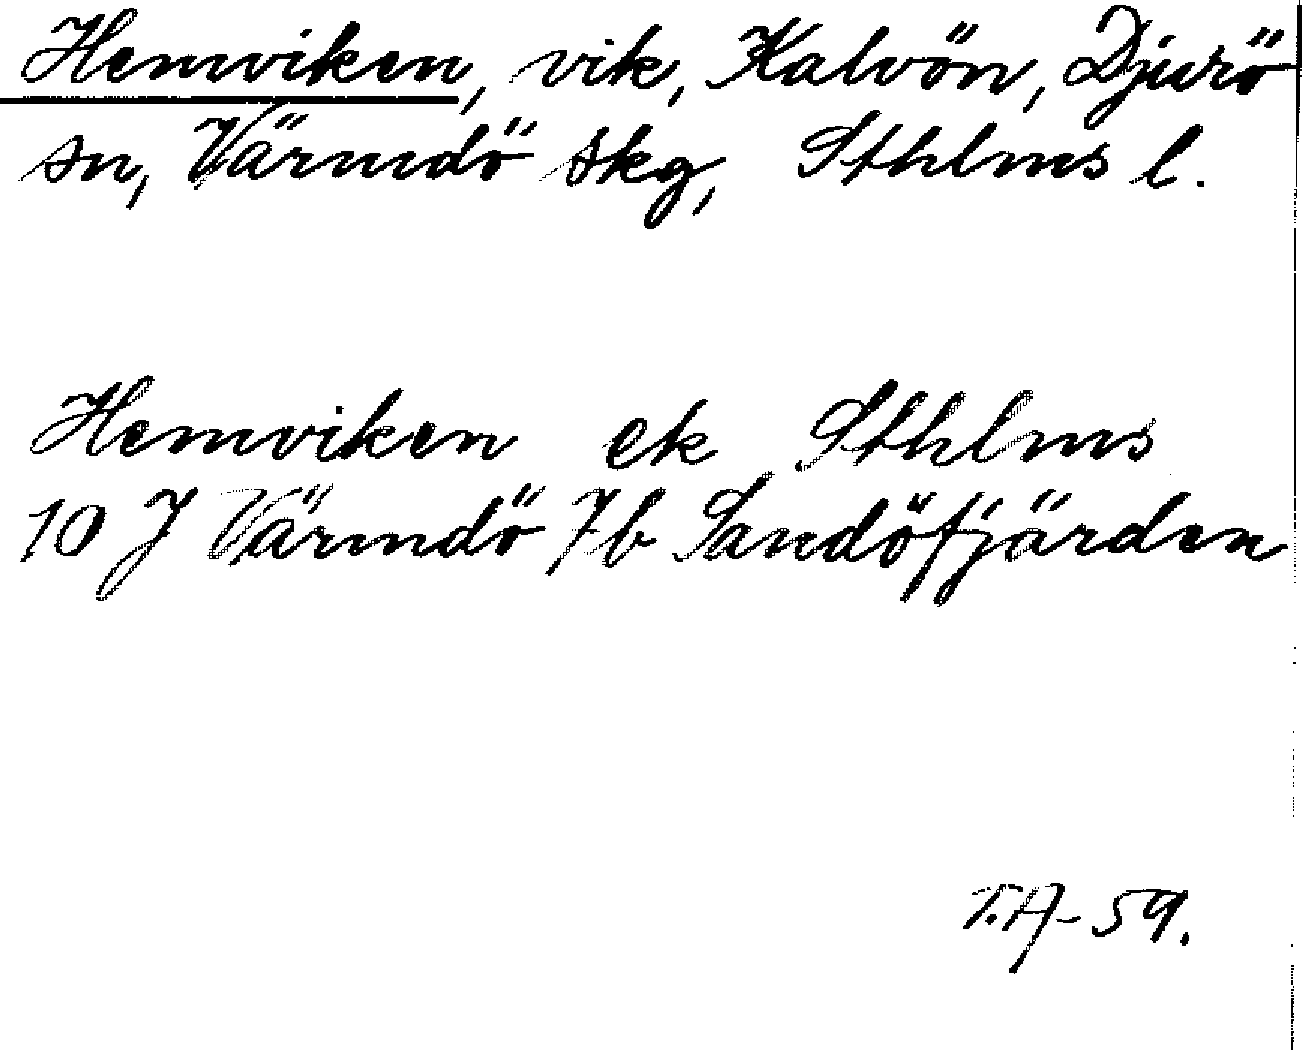 Hemviken, vik, Kalvön, Djurö
sn, Värmdö skg, Sthlms l.
Hemviken ek Sthlms
10 J Värmdö 7b Sandöfjärden
T.A- 59.